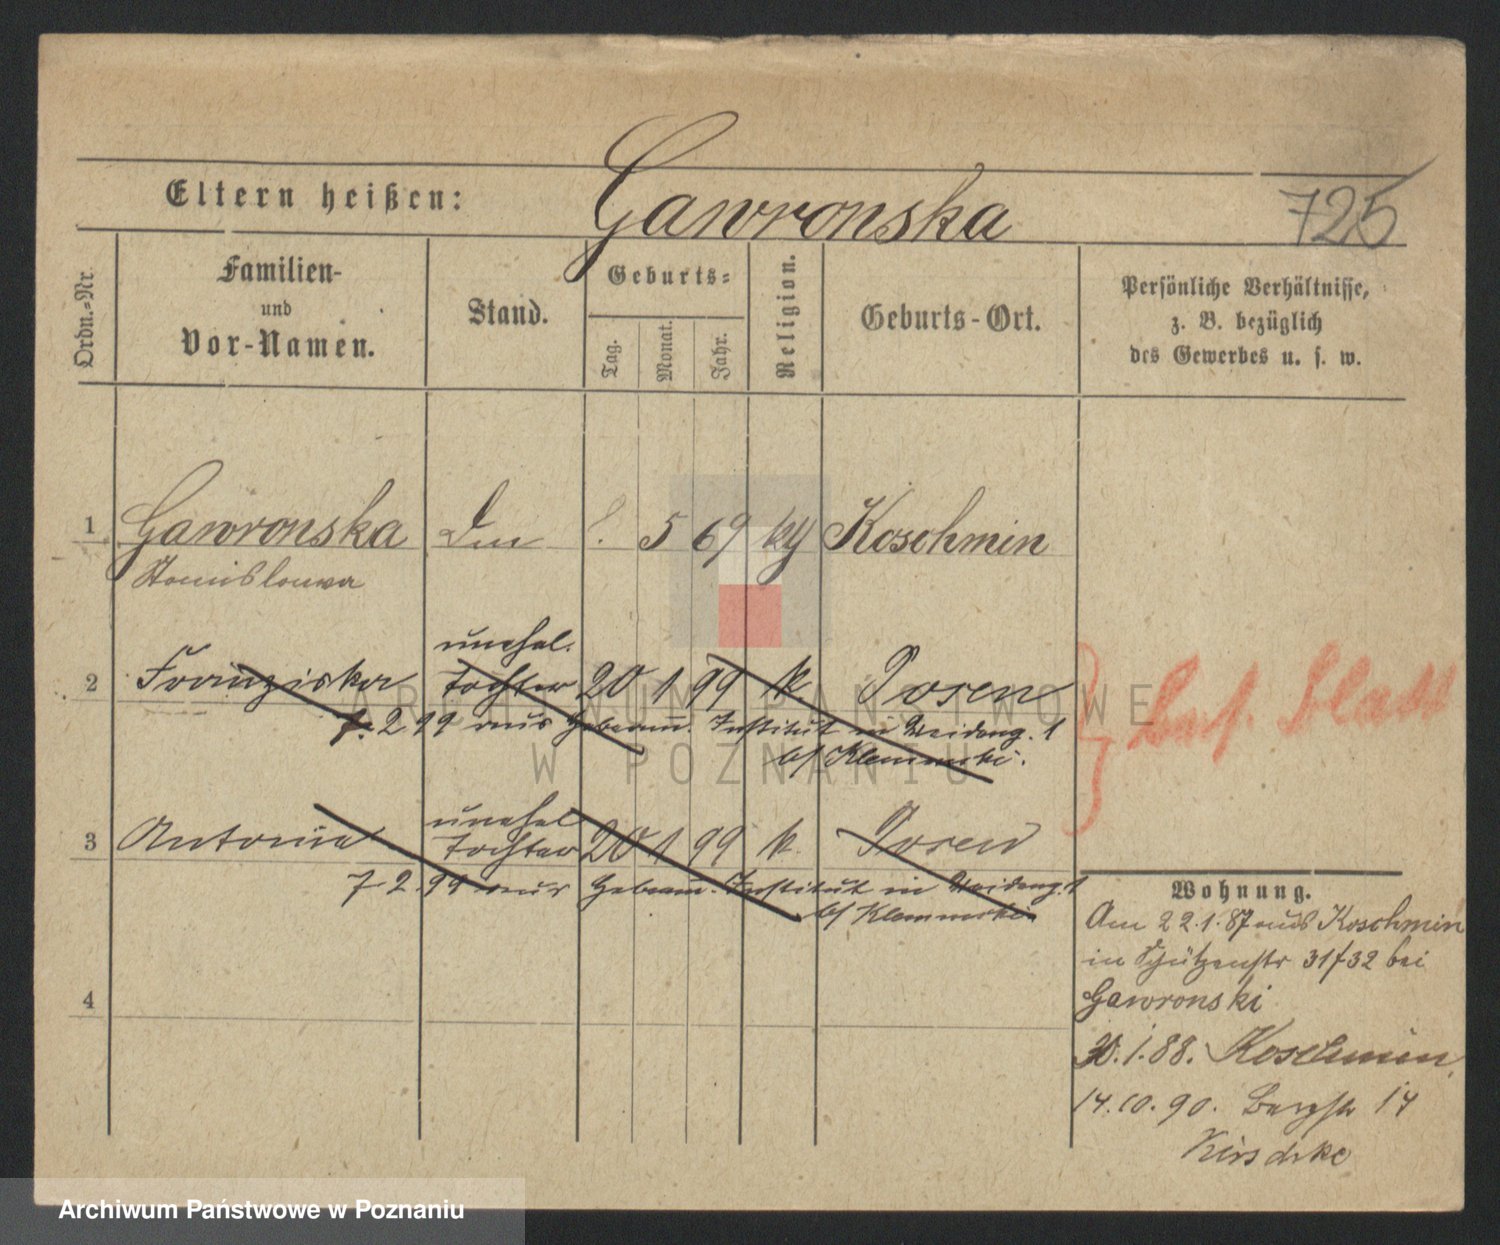 Eltern heißen: Gawronska 725
Ordn.-Nr.
Familien-
und
Vor-Namen.
Stand.
Geburts-
Tag.
Monat.
Jahr.
Religion.
Geburts-Ort.
Persönliche Verhältnisse,
z. B. bezüglich
des Gewerbes u. s. w.
1 Gawronska 5 69 Koschmin
Stanislawa
unehel.
2 Franziska Tochter 20 1 99 k Posen
7. 2 99 aus Gebeam. Institut in Weideng. 1
b/ Klemmski.
bes. Blatt
unehel
3 Antonie Tochter 20 1 99 k. Posen
7 2. 99 aus Gebeam. Institut in Weideng. 1
b/ Klemmski
4
Wohnung.
Am 22.1.87 aus Koschmin
in Schützenstr 31/32 bei
Gawronski
30.1.88. Koschmin
14.10.90. Bergstr 14
ARCHIWUM PAŃSTWOWE
W POZNANIU
Archiwum Państwowe w Poznaniu